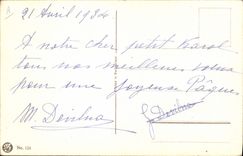 21 Avril 1934
A notre cher petit Karol
tous nos meilleurs vœux
pour une joyeuse Pâques
M. Devilna
No. 124